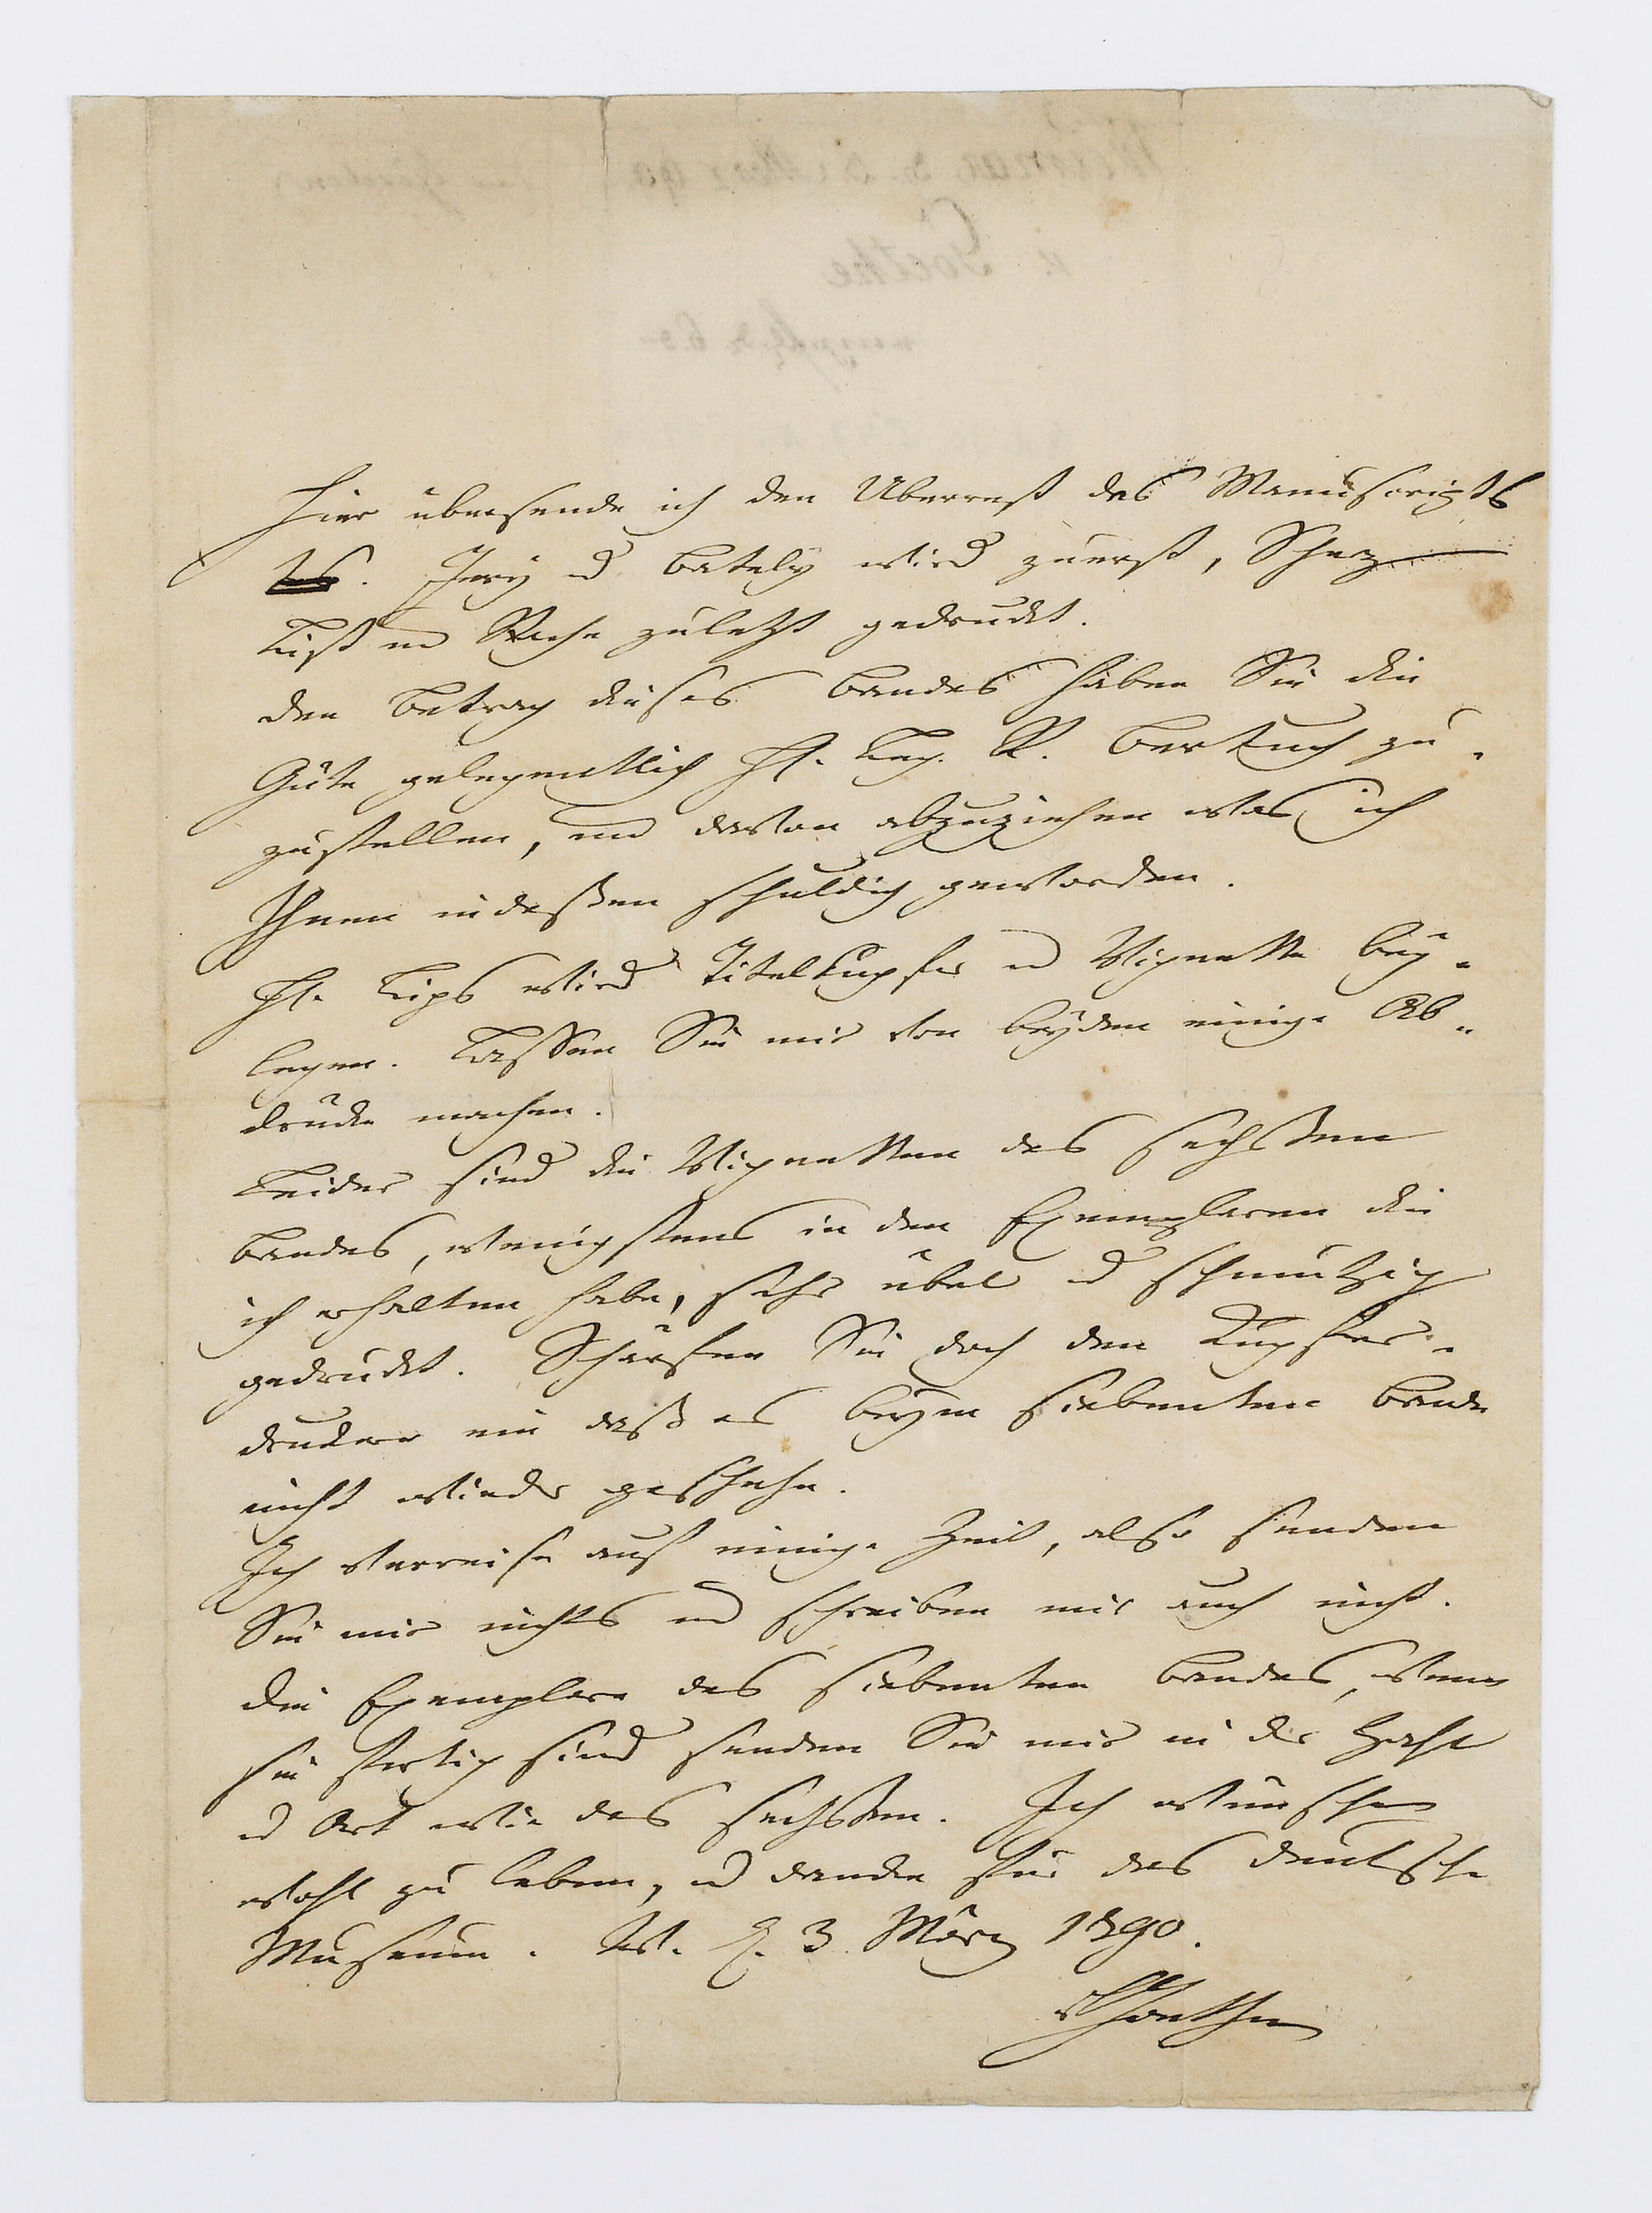 Hier übersende ich den Überrest des Manuscripts
Jery u Bätely wird zuerst, Scherz
List und Rache zuletzt gedruckt.
Den Betrag dieses Bandes haben Sie die
Güte gelegentlich H. Leg. R. Bertuch zu-
zustellen, und davon abzuziehen was ich
Ihnen indeßen schuldig geworden.
H. Lips wird Titelkupfer u Vignette bey-
legen. Lassen Sie mir von beyden einige Ab-
drücke machen.
Leider sind die Vignetten des sechsten
Bandes, wenigstens in den Exemplaren die
ich erhalten habe, sehr übel u schmutzig
gedruckt. Schärfen Sie doch dem Kupfer-
drucker ein daß es beym siebenten Bande
nicht wieder geschehe.
Ich verreise auf einige Zeit, also senden
Sie mir nichts und schreiben mir auch nicht.
Die Exemplare des siebenten Bandes, wenn
sie fertig sind senden Sie mir in der Zahl
u Art wie des sechsten. Ich wünsche
wohl zu leben, u dancke für das deutsche
Museum. W. d. 3 März 1790.
vGoethe
Goethe